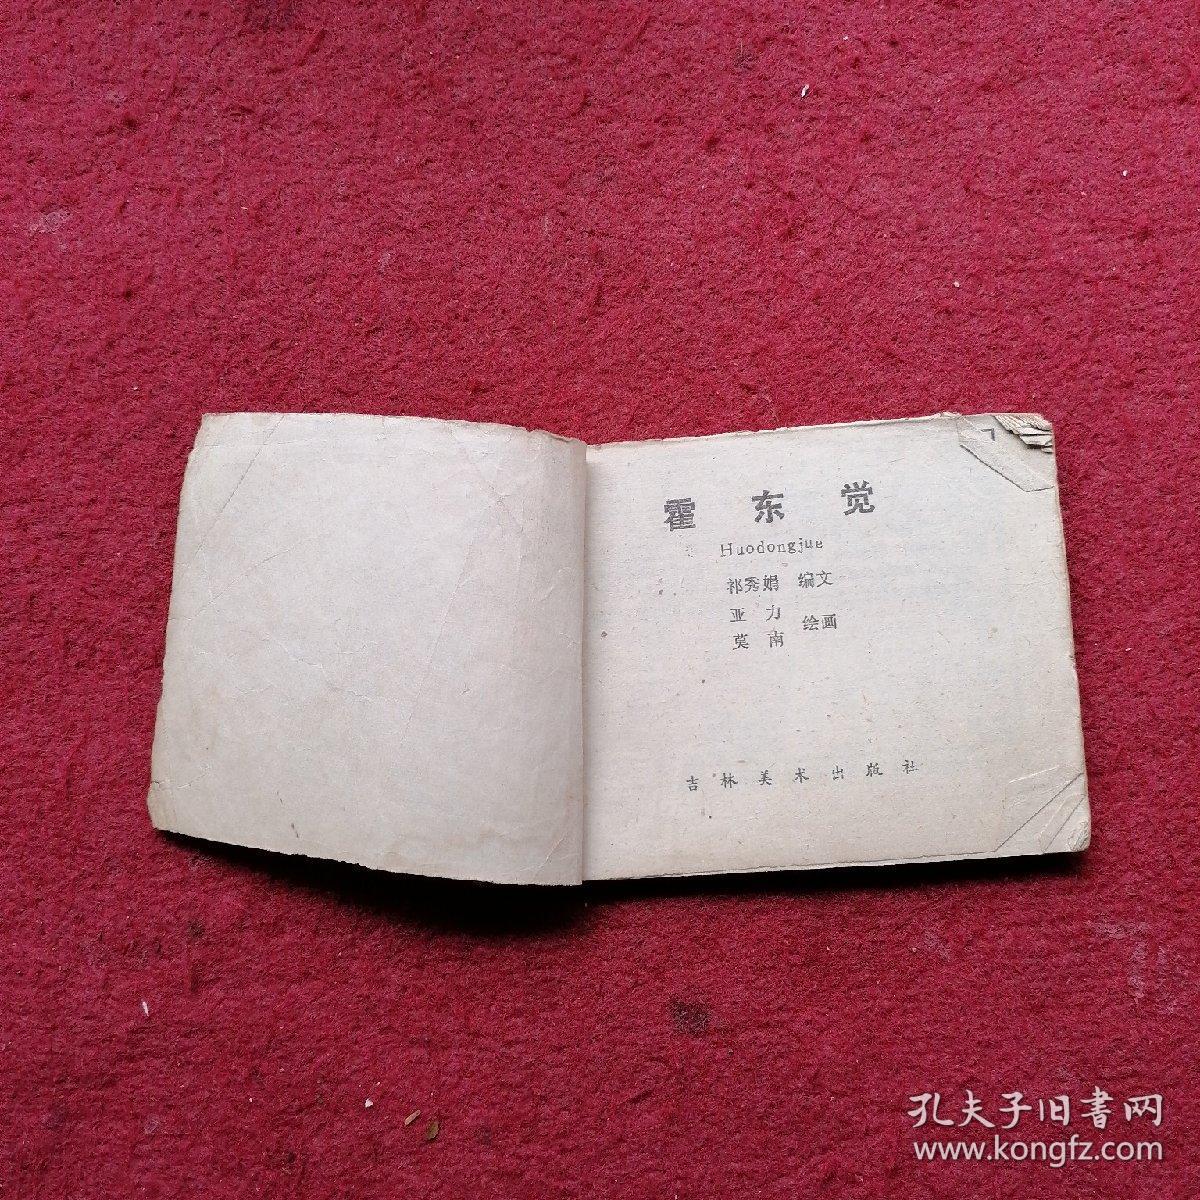 霍东觉
Huodongjue
祁秀娟 编文
亚力
莫南 绘画
吉林美术出版社
孔夫子旧書网
www.kongfz.com